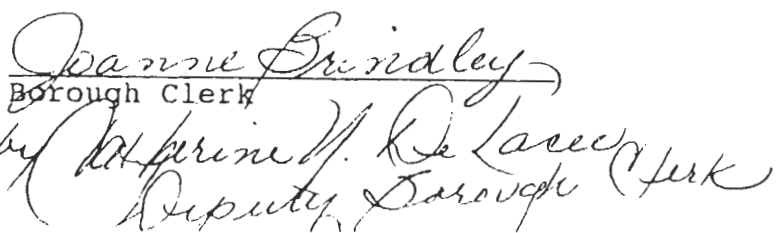 Joanne Brindley
Borough Clerk
by Katherine N. De Lacee
Deputy Borough Clerk